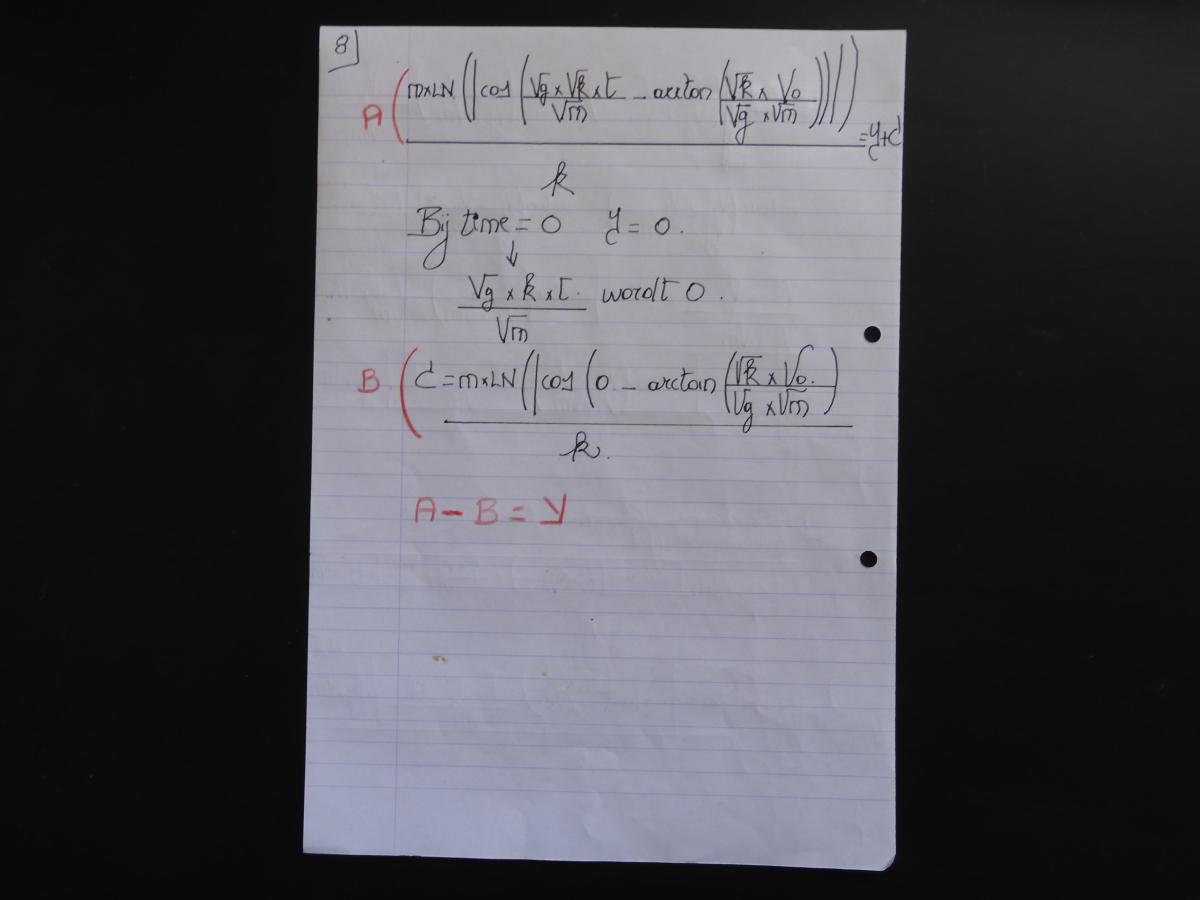 8
A ( m×LN(|cos(√g×√k×t/√m - arctan(√k×V0/√g×√m))|) / k = y+C
Bij time = 0 y = 0.
↓
√g × k × t. / √m wordt 0.
B ( C = m×LN(|cos(0 - arctan(√k × V0./√g ×√m) / k.
A - B = y